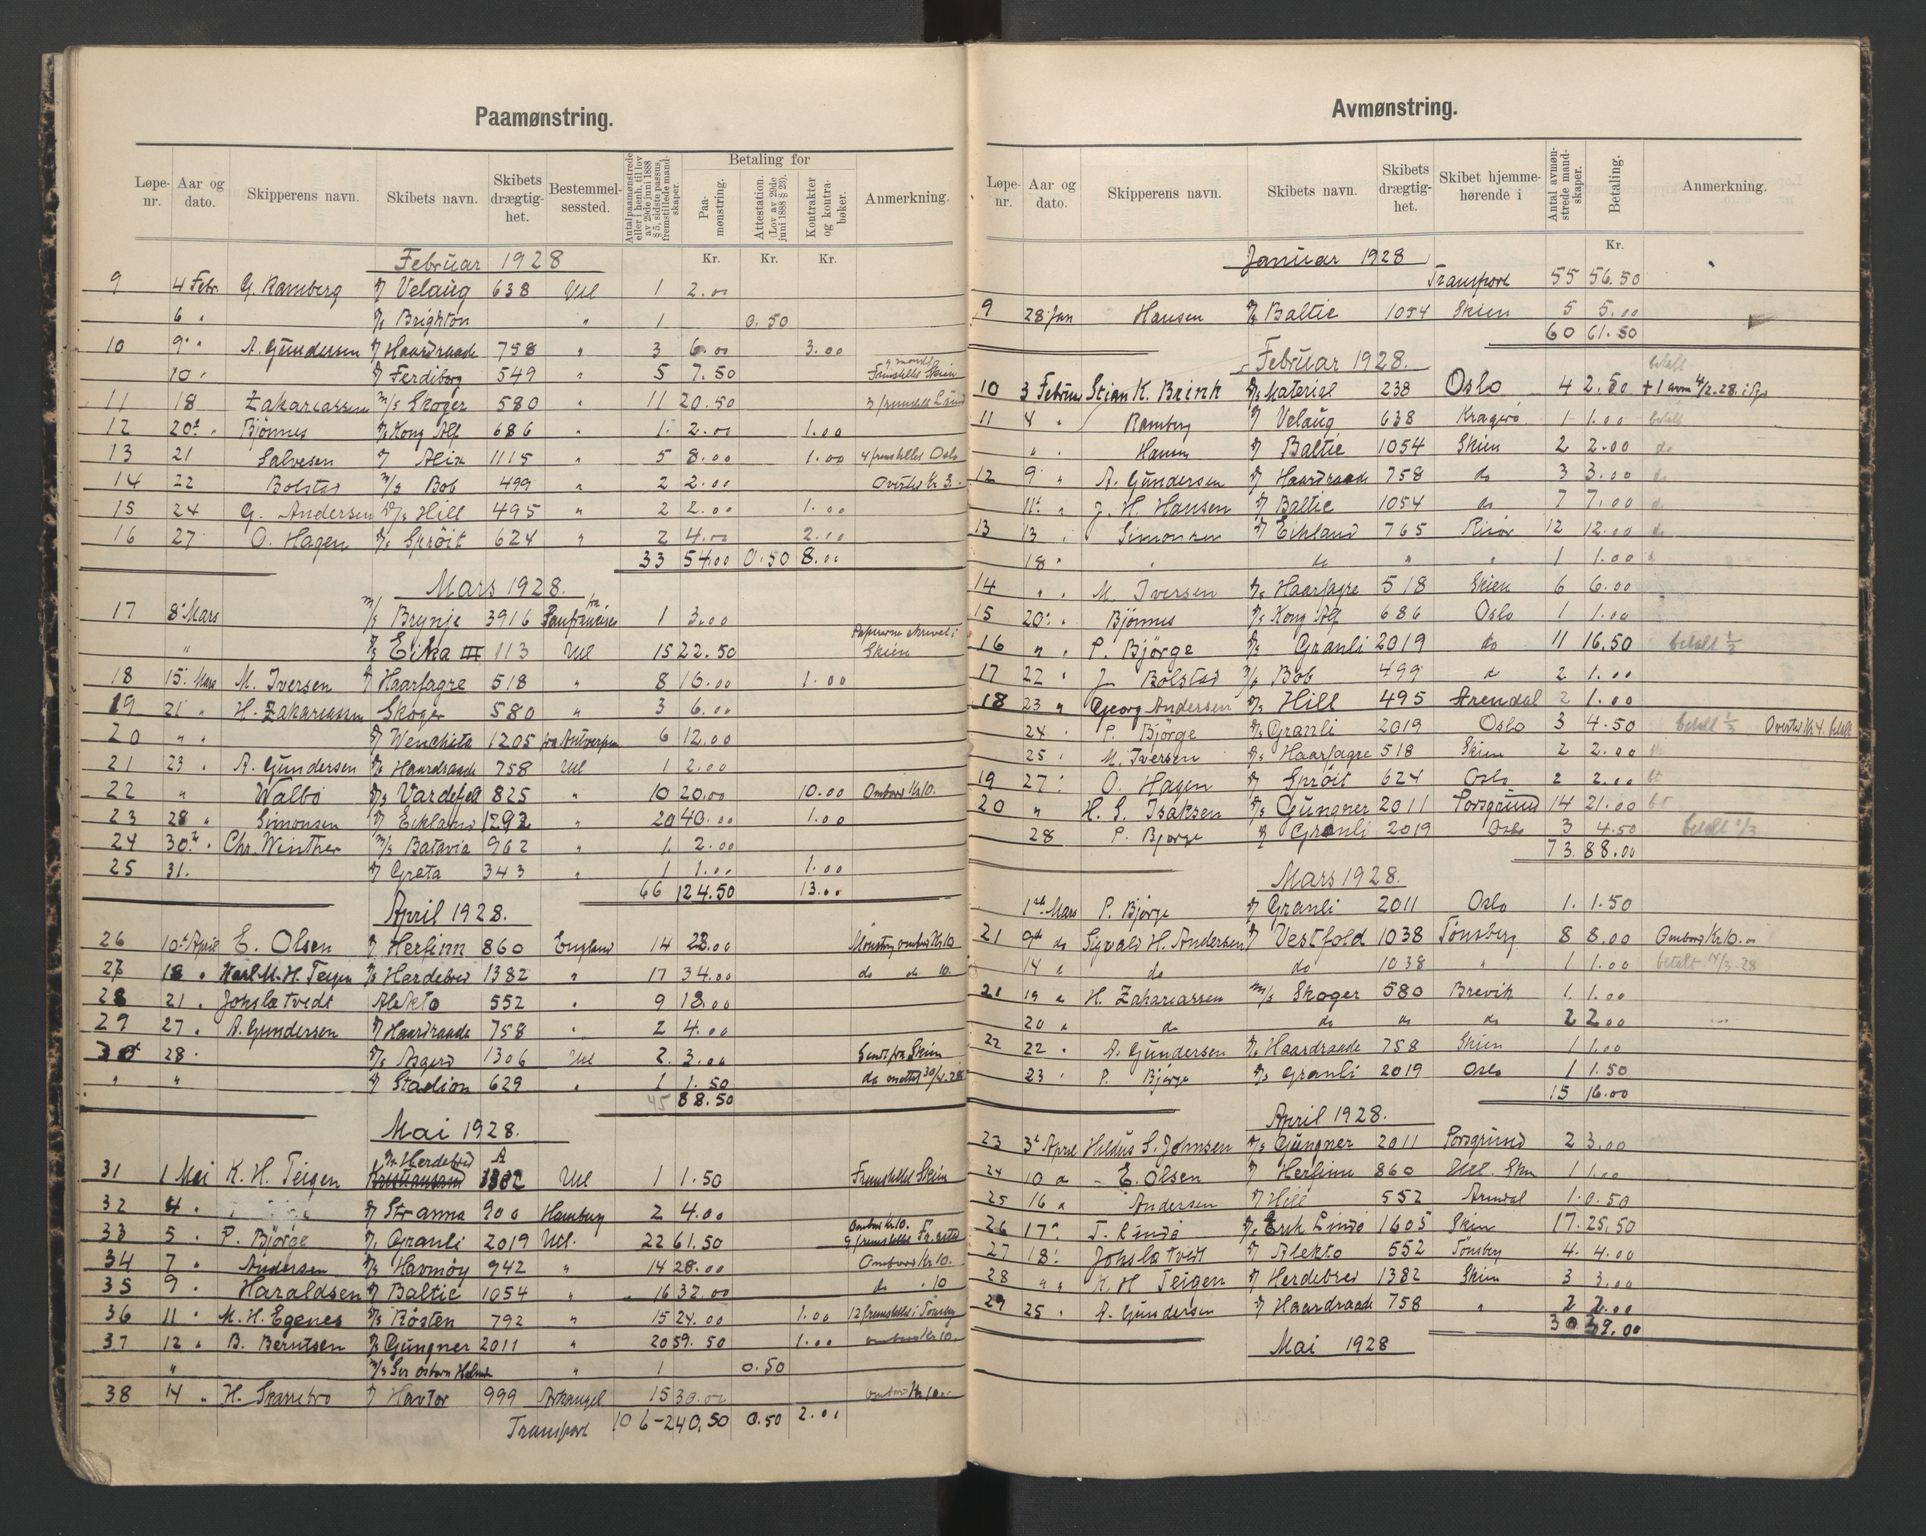 Paamønstring.
Løpe-nr. Aar og dato. Skipperens navn. Skibets navn. Skibets drægtighet. Bestemmelsessted. Antal paamønstrede eller i henh. til lov av 29de juni 1888 § 5, sidste passus, fremstillede mandskaper. Betaling for Paamønstring. Attestation. (Lov av 29de juni 1888 § 23). Kontrakter og kontrabøker. Anmerkning.
Kr. Kr. Kr.
Februar 1928
9 4 Febr. G. Ramberg Velaug 638 Utl 1 2.00
6 " Brighton " 1 0.50
10 9 " A. Gundersen Haardraade 758 " 3 6.00 3.00
10 " Ferdiborg 549 " 5 7.50 Fremstillet Skien
11 18 Zakariassen M/S Skoger 580 " 11 20.50
12 20 " Bjønnes Kong Alf 686 " 1 2.00 1.00
13 21 Salvesen Alix 1115 " 5 8.00 1.00 4 fremstillet Oslo
14 22 Bolstad M/S Bob 499 " 2 2.00 Overtid Kr 3.-
15 24 G. Andersen Hill 495 " 2 2.00 1.00
16 27 O. Hagen Sprøit 624 " 2 4.00 2.00
33 54.00 0.50 8.00
Mars 1928.
17 8 Mars M/S Brynje 3916 fra Sanfrancisco 1 3.00
" Eika III 113 Utl 15 22.50 Papirerne skrevet i Skien
18 15 Mars M. Iversen Haarfagre 518 " 8 16.00 1.00
19 21 " H. Zakariassen Skoger 580 " 3 6.00
20 " " Wenchita 1205 fra Antverpen 6 12.00
21 23 " A. Gundersen Haardraade 758 Utl 1 2.00
22 " Walbø Vardefjell 825 " 10 20.00 10.00 Ombord Kr 10.
23 28 " Simonsen Eikland 1292 " 20 40.00 1.00
24 30 " Chr. Winther M/S Batavia 962 " 1 2.00
25 31. Greta 343 " 1 1.00 1.00
66 124.50 13.00
April 1928.
26 10 April E. Olsen Herlinn 860 England 14 28.00 Mønstring ombord Kr 10
27 18 " Karl M. H. Teigen Herdebred 1382 " 17 34.00 do do 10.
28 21 " Johs Latvedt Alekto 552 9 18.00
29 27 " A. Gundersen Haardraade 758 " 2 4.00
30 28 " Asgerd 1306 Utl 2 3.00 Sendt fra Skien
" " Stadion 629 " 1 1.50 do 30/4-28
45 88.50
Mai 1928.
31 1 Mai K. H. Teigen Herdebred 1382 Utl 1 1.50 Fremstillet Skien
32 4 " Stranna 900 Hamburg 2 4.00
33 5 " P. Bjørge Granli 2019 Utl. 22 61.50 Ombord Kr 10.
34 7 " Andersen Havmøy 942 " 14 28.00 Ombord Kr 10.
35 9 " Haraldsen Baltic 1054 " 16 32.00 do " 10
36 11 " M. H. Egenes Røsten 792 " 15 24.00 1.00 12 fremstillet i Tønsberg
37 12 " B. Berntsen Gungner 2011 " 20 59.50 1.00 ombord Kr 10.
" " 1 0.50
38 14 " H. Skarebo Havtor 999 Arkangel 15 30.00 ombord Kr 10.00
Transport 106 - 240.50 0.50 2.00
Avmønstring.
Løpe-nr. Aar og dato. Skipperens navn. Skibets navn. Skibets drægtighet. Skibet hjemmehørende i Antal avmønstrede mandskaper. Betaling. Anmerkning.
Kr.
Januar 1928
Transport 55 56.50
9 28 Jan Hansen Baltic 1054 Skien 5 5.00
60 61.50
Februar 1928. betalt
10 3 Februar Stian K. Brink Material 238 Oslo 4 2.50 + 1 avm 4/2-28.
11 4 " Ramberg Velaug 638 Kragerø 1 1.00 betalt
" " Hansen Baltic 1054 Skien 2 2.00 do
12 9 " A. Gundersen Haardraade 758 do 3 3.00 d.
11 " J. H. Hansen Baltic 1054 do 7 7.00 d.
13 13 " Simonsen Eikland 765 Risør 12 12.00 d.
18 " " do " " 1 1.00
14 " " M. Iversen Haarfagre 518 Skien 6 6.00
15 20 " Bjønnes Kong Alf 686 Oslo 1 1.00
16 " " P. Bjørge Granli 2019 do 11 16.50 betalt 1/3
17 22 " J. Bolstad M/S Bob 499 d 2 1.00
18 23 " Georg Andersen Hill 495 Arendal 2 1.00
24 " P. Bjørge Granli 2019 Oslo 3 4.50 betalt 1/3 Overtid Kr 4. betalt
25 " M. Iversen Haarfagre 518 Skien 2 2.00
19 27 " O. Hagen Sprøit 624 Oslo 2 2.00 bt
20 " H. S. Isaksen Gungner 2011 Porsgrund 14 21.00 bt
28 P. Bjørge Granli 2019 Oslo 3 4.50 betalt 1/3
73. 88.00
Mars 1928.
1 Mars P. Bjørge Granli 2011 Oslo 1. 1.50
21 9 do Sigvald H. Andersen Vestfold 1038 Tønsberg 8 8.00 Ombord Kr 10.00
14 " do do 1038 " 1 1.00 betalt 14/3-28
21 19 " H. Zakariassen M/S Skoger 580 Brevik 1. 1.00
20 " do do do do 2 2.00
22 22 " A. Gundersen Haardraade 758 Skien 1 1.00
23 " P. Bjørge Granli 2019 Oslo 1 1.50
15 16.00
April 1928.
23 3 April Hildus S. Johnsen Gungner 2011 Porsgrund 2 3.00
24 10 " E. Olsen Herlinn 860 1 1.00
25 16 " Andersen Hill 552 Arendal 1. 0.50
26 17 " T. Lindø Erik Lindø 1605 Skien 17. 25.50
27 18 " Johs Latvedt Alekto 552 Tønsberg 4. 4.00
28 " " K. H. Teigen Herdebred 1382 Skien 3 3.00
29 25 " A. Gundersen Haardraade 758 " 2 2.00
30 39.00
Mai 1928